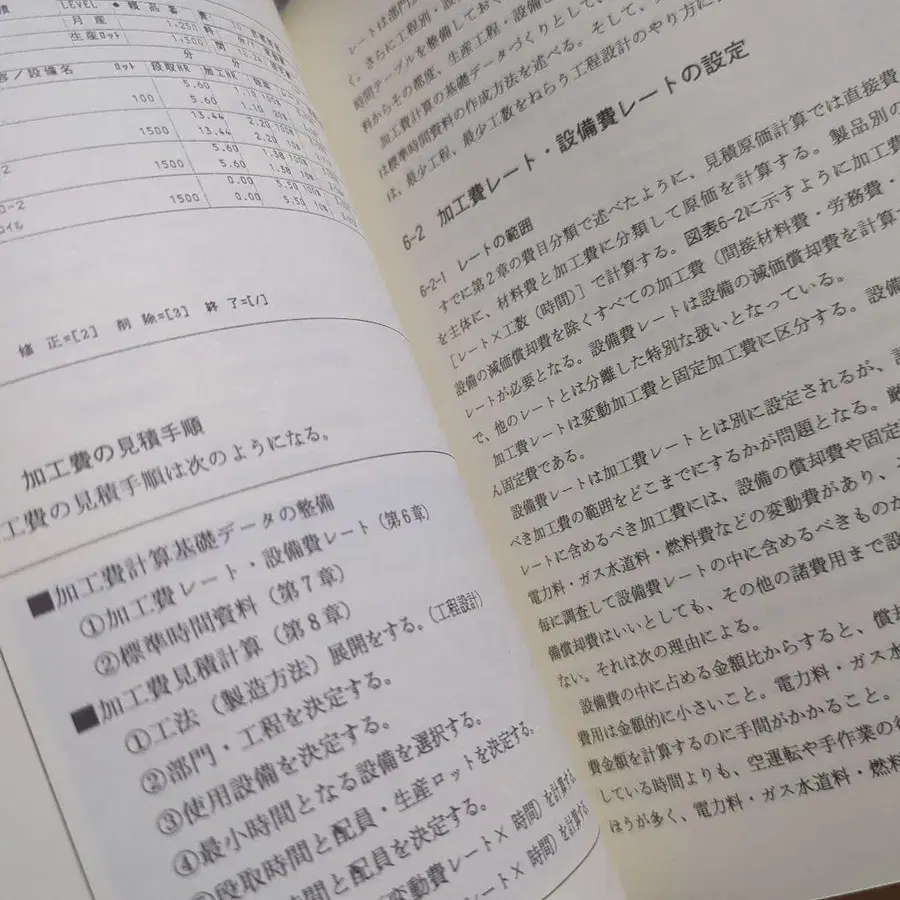 LEVEL
月産
生産ロット
1,250
1,500
設備名 ロット 段取HR 加工HR
5.60
100 5.60 1.10
13.44 2.20 100%
1500 13.44 2.20
5.60 1.38 100%
1500 5.60 1.38
0.00 5.50
1500 0.00 5.50
修 正=[2] 削 除=[3] 終 了=[/]
加工費の見積手順
工費の見積手順は次のようになる。
■加工費計算基礎データの整備
①加工費レート・設備費レート(第6章)
②標準時間資料(第7章)
■加工費見積計算(第8章)
①工法(製造方法)展開をする。(工程設計)
②部門・工程を決定する。
③使用設備を決定する。
④最小時間となる設備を選択する。
段取時間と配員・生産ロットを決定する。
時間と配員を決定する。
変動費レート×時間)を計算する
レート×時間)を計算する
レートは部門
く。さらに工程別、設
時間テーブルを整備してお
料からその都度、生産工程・設備
加工費計算の基礎データづくりとして、
は標準時間資料の作成方法を述べる。そして、
は、最少工程、最少工数をねらう工程設計のやり方に
6-2 加工費レート・設備費レートの設定
6-2-1 レートの範囲
すでに第2章の費目分類で述べたように、見積原価計算では直接費
を主体に、材料費と加工費に分類して原価を計算する。製品別の
[レート×工数(時間)]で計算する。図表6-2に示すように加工費
設備の減価償却費を除くすべての加工費(間接材料費・労務費・
レートが必要となる。設備費レートは設備の減価償却費を計算す
で、他のレートとは分離した特別な扱いとなっている。
加工費レートは変動加工費と固定加工費に区分する。設備
ん固定費である。
設備費レートは加工費レートとは別に設定されるが、
べき加工費の範囲をどこまでにするかが問題となる。厳
レートに含めるべき加工費には、設備の償却費や固定
電力料・ガス水道料・燃料費などの変動費があり、
毎に調査して設備費レートの中に含めるべきものか
備償却費はいいとしても、その他の諸費用まで設
ない。それは次の理由による。
設備費の中に占める金額比からすると、償却
費用は金額的に小さいこと。電力料・ガス水
費金額を計算するのに手間がかかること。
している時間よりも、空運転や手作業の
ほうが多く、電力料・ガス水道料・燃料